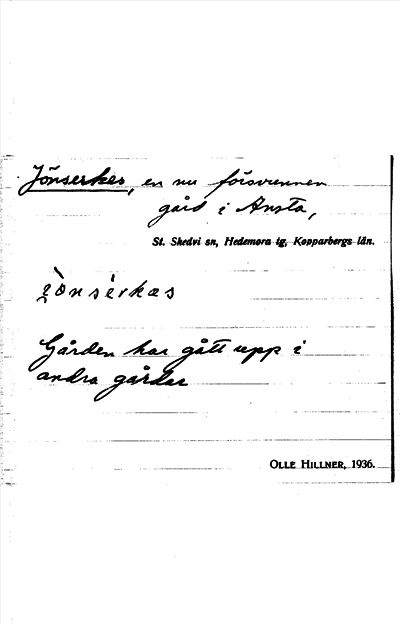 Jönserkes, en nu försvunnen
gård i Ansta,
St. Skedvi sn, Hedemora tg, Kopparbergs län.
jònsérkas
Gården har gått upp i
andra gårdar
OLLE HILLNER, 1936.